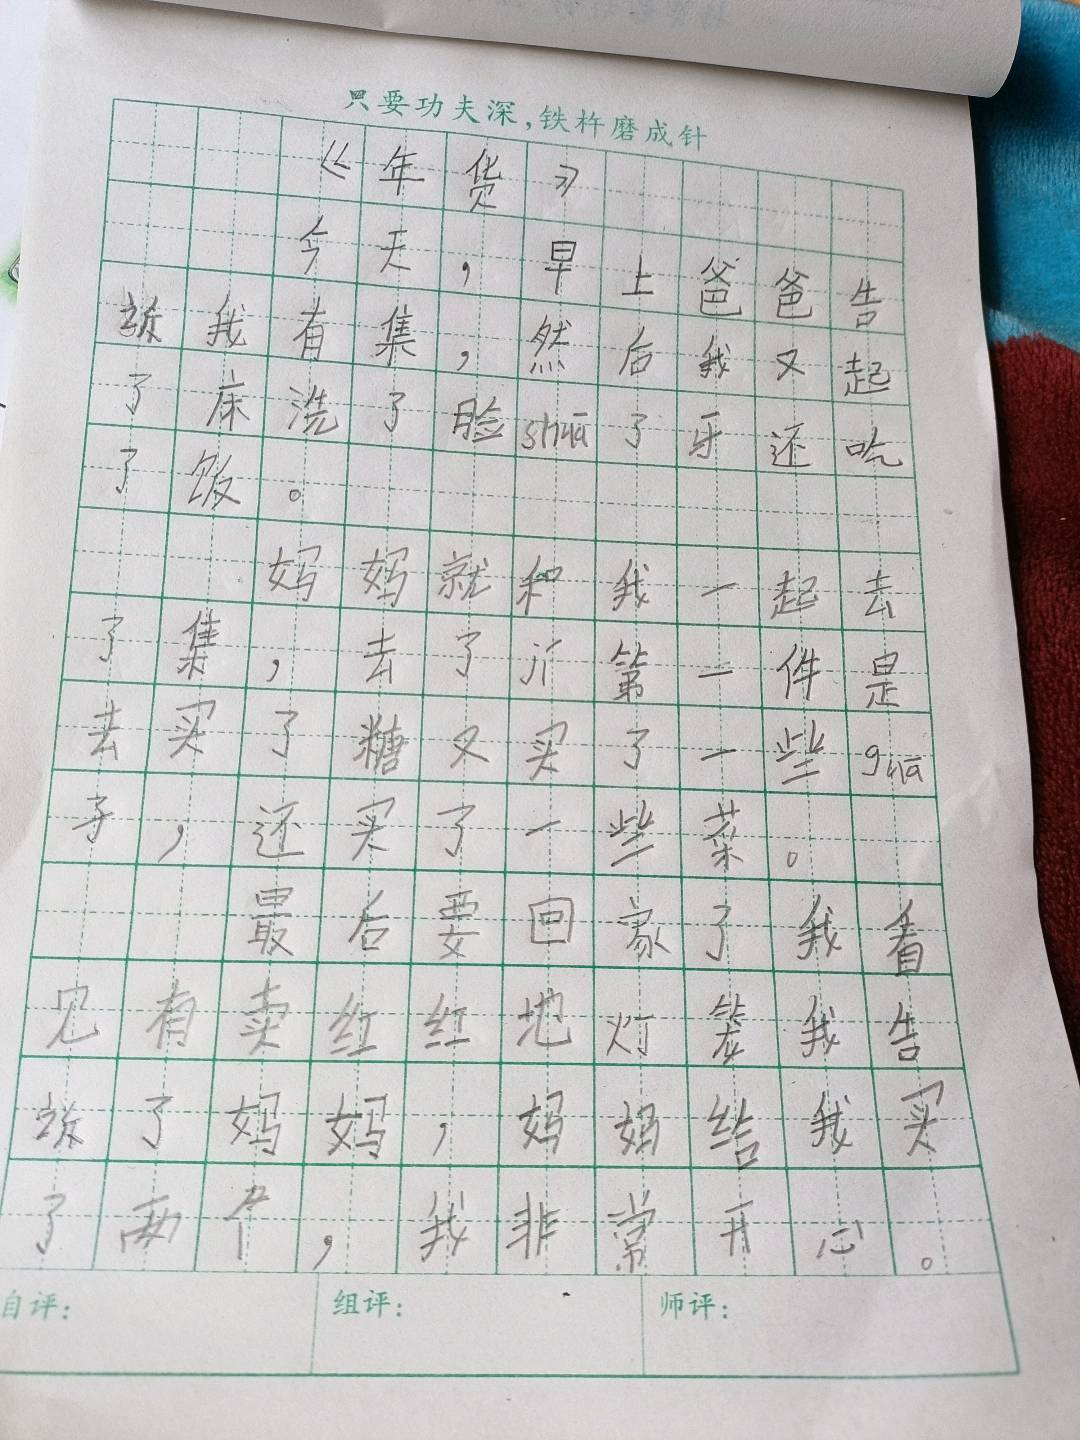 只要功夫深,铁杵磨成针
《年货》
今天,早上爸爸告
我有集,然后我又起
了床洗了脸shuā了牙还吃
了饭。
妈妈就和我一起去
了集,去了 第一件是
去买了糖又买了一些guā
子,还买了一些菜。
最后要回家了我看
见有卖红红地灯笼我告
了妈妈,妈妈给我买
了两个,我非常开心。
自评: 组评: 师评: